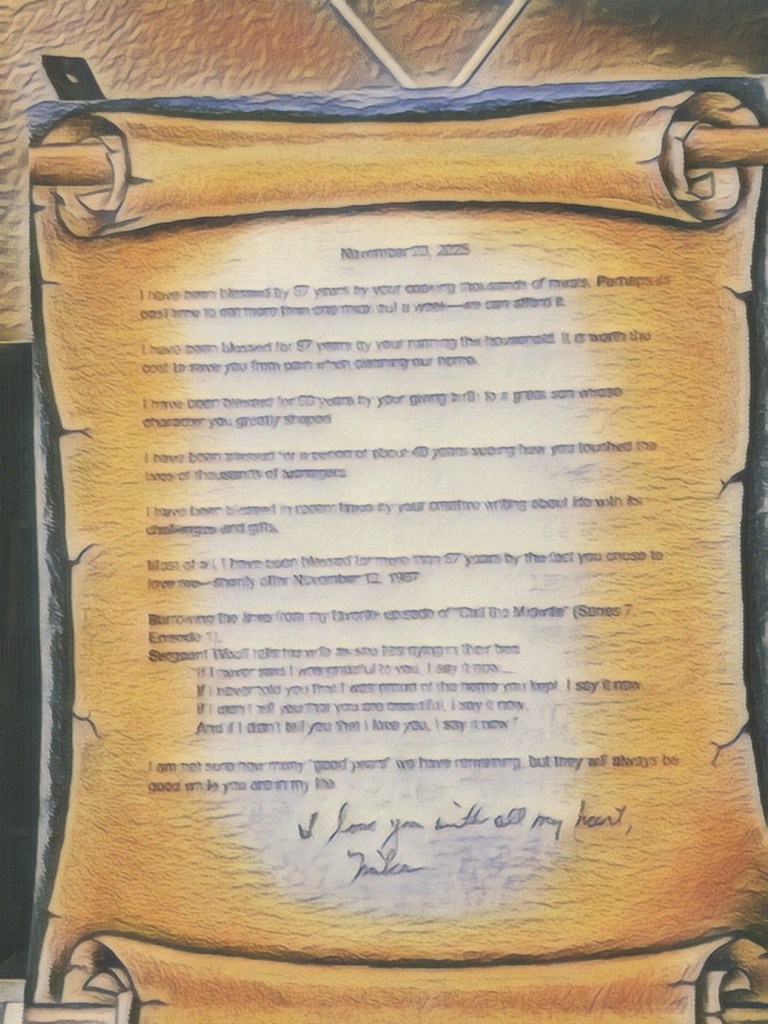 November 23, 2025
I have been blessed by 57 years by your cooking thousands of meals. Perhaps its
past time to eat more than one meal out a week—we can afford it.
I have been blessed for 57 years by your running the household. It is worth the
cost to save you from pain when cleaning our home.
I have been blessed for years by your giving birth to a great son whose
character you greatly shaped
I have been blessed for a period of about 40 years seeing how you touched the
lives of thousands of teenagers.
I have been blessed in recent times by your creative writing about life with its
challenges and gifts.
Most of all, I have been blessed for more than 57 years by the fact you chose to
love me—shortly after November 12, 1967
Borrowing the lines from my favorite episode of "Call the Midwife" (Series 7,
Episode 1),
Sergeant Woolf tells his wife as she lies dying in their bed
"If I never said I was grateful to you, I say it now....
If I never told you that I was proud of the home you kept, I say it now
If I didn't tell you that you are beautiful, I say it now.
And if I didn't tell you that I love you, I say it now."
I am not sure how many "good years" we have remaining, but they will always be
good while you are in my life.
I love you with all my heart,
Mike